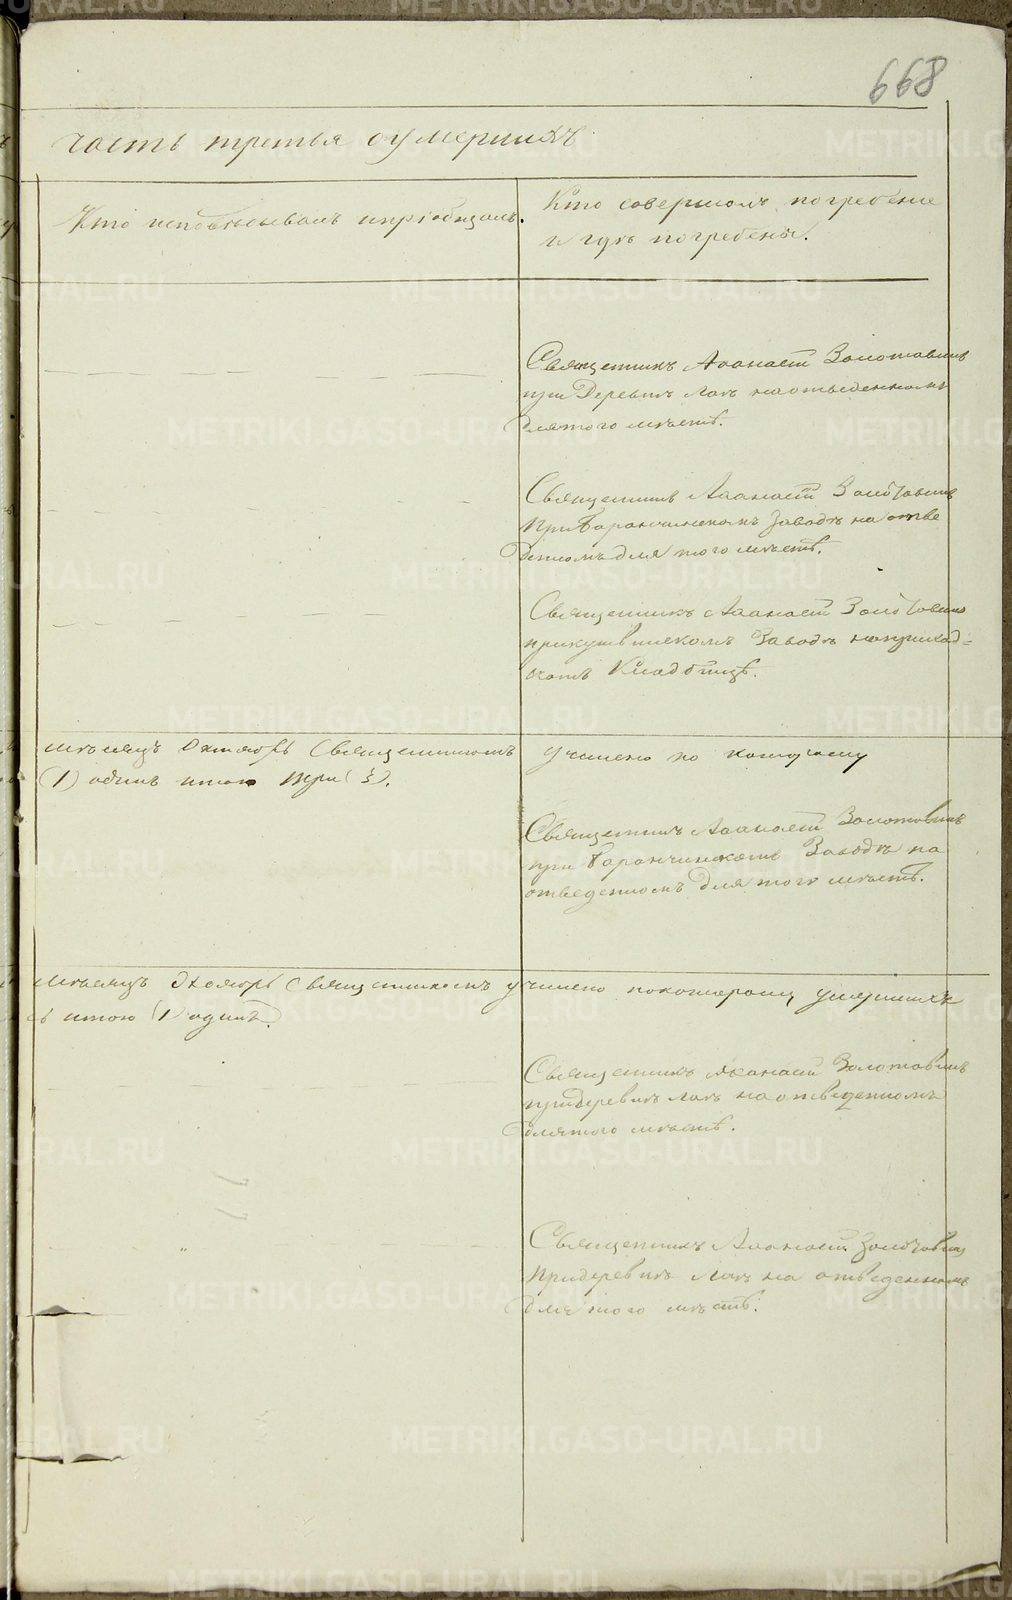 668
часть третья о умершихъ
Кто исповѣдывалъ и пріобщалъ.
Кто совершалъ погребеніе
и гдѣ погребены.
Священникъ Афанасій Золотавинъ
при Деревнѣ Лаѣ на отведенномъ
для того мѣстѣ.
Священникъ Афанасій Золотавинъ
при Баранчинскомъ Заводѣ на отве
денномъ для того мѣстѣ.
Священникъ Афанасій Золотавинъ
при Кушвинскомъ Заводѣ на приход=
скомъ Кладбищѣ.
мѣсяцъ Октябрь Священникомъ учинено по которому
(1) одинъ итого три (3).
Священникъ Афанасій Золотавинъ
при Баранчинскомъ Заводѣ на
отведенномъ для того мѣстѣ.
мѣсяцъ Ноябрь Священникомъ учинено по которому умершихъ
итого (1) одинъ.
Священникъ Афанасій Золотавинъ
при деревнѣ Лаѣ на отведенномъ
для того мѣстѣ.
Священникъ Афанасій Золотавинъ
при деревнѣ Лаѣ на отведенномъ
для того мѣстѣ.
METRIKI.GASO-URAL.RU